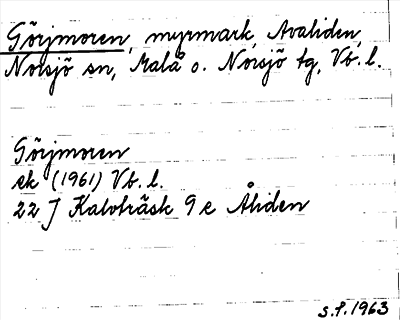 Görjmoren, myrmark, Avaliden,
Norsjö sn, Malå o. Norsjö tg, Vb. l.
Görjmoren
ek (1961) Vb. l.
22 J Kalvträsk 9 e Åliden
S.F. 1963